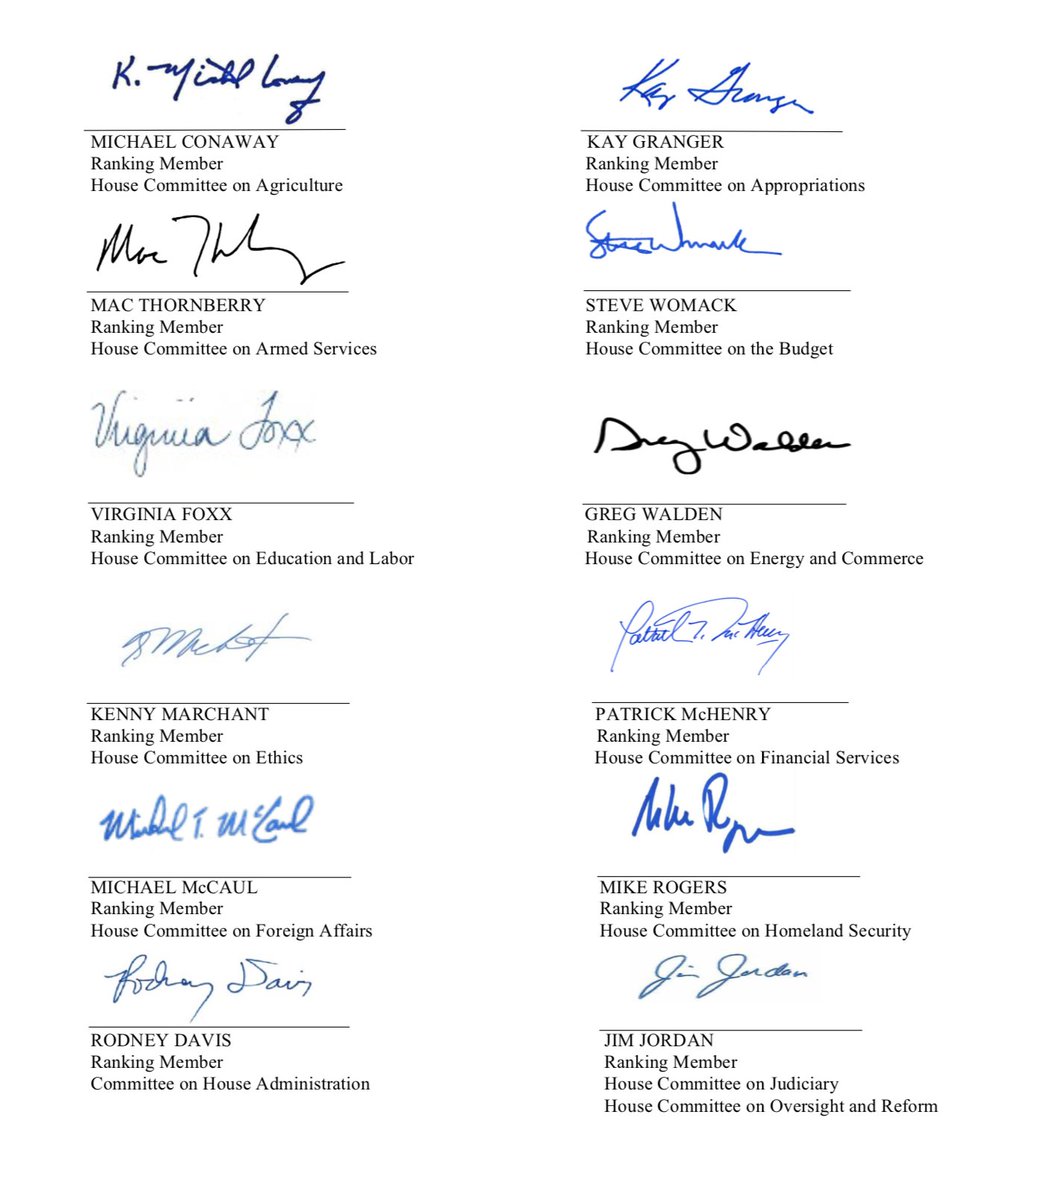 K. Michael Conaway
MICHAEL CONAWAY
Ranking Member
House Committee on Agriculture
Kay Granger
KAY GRANGER
Ranking Member
House Committee on Appropriations
Mac Thornberry
MAC THORNBERRY
Ranking Member
House Committee on Armed Services
Steve Womack
STEVE WOMACK
Ranking Member
House Committee on the Budget
Virginia Foxx
VIRGINIA FOXX
Ranking Member
House Committee on Education and Labor
Greg Walden
GREG WALDEN
Ranking Member
House Committee on Energy and Commerce
Marchant
KENNY MARCHANT
Ranking Member
House Committee on Ethics
Patrick T. McHenry
PATRICK McHENRY
Ranking Member
House Committee on Financial Services
Michael T. McCaul
MICHAEL McCAUL
Ranking Member
House Committee on Foreign Affairs
Mike Rogers
MIKE ROGERS
Ranking Member
House Committee on Homeland Security
Rodney Davis
RODNEY DAVIS
Ranking Member
Committee on House Administration
Jim Jordan
JIM JORDAN
Ranking Member
House Committee on Judiciary
House Committee on Oversight and Reform